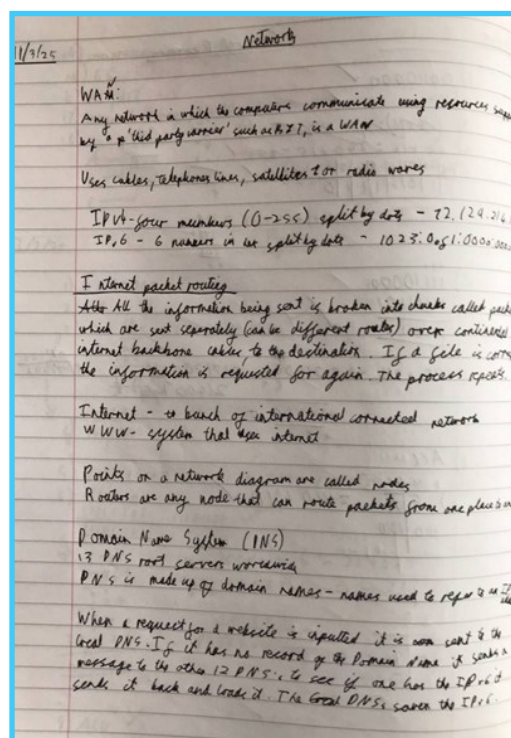 Network
11/3/25
WAN:
Any network in which the computers communicate using resources
by a 'third party carrier' such as B&T, is a WAN
Uses cables, telephones lines, satellites or radio waves
IPv4 - four numbers (0-255) split by dots - 72.124.214.
IPv6 - 6 numbers in split by dots - 1023:0
Internet packet routing
All the information being sent is broken into chunks called
which are sent separately (can be different routes) over
internet backbone cables, to the destination. If a file is
the information is requested for again. The process repeats.
Internet - bunch of international connected network
WWW - system that uses internet
Points on a network diagram are called nodes
Routers are any node that can route packets from one place
Domain Name System (DNS)
13 DNS root servers worldwide
DNS is made up of domain names - names used to refer to an IP
When a request for a website is inputted it is sent to the
local DNS. If it has no record of the Domain Name it sends a
message to the other 12 DNSs to see if one has the IPv6 it
sends it back and loads it. The local DNSs saves the IPv6.